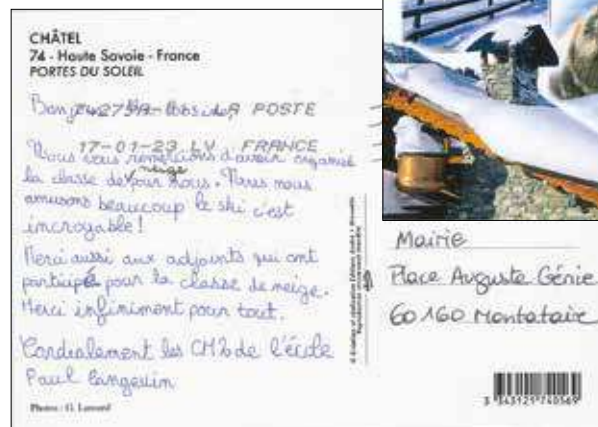 CHÂTEL
74 - Haute Savoie - France
PORTES DU SOLEIL
24275A- A POSTE
17-01-23 LV FRANCE
Nous vous remercions d'avoir organisé
la classe de neige pour nous. Nous nous
amusons beaucoup le ski c'est
incroyable!
Merci aussi aux adjoints qui ont
participé pour la classe de neige.
Merci infiniment pour tout.
Cordialement les CM2 de l'école
Paul Langevin
Photos : G. Lansard
Mairie
Place Auguste Génie
60160 Montataire
3 343121 740569